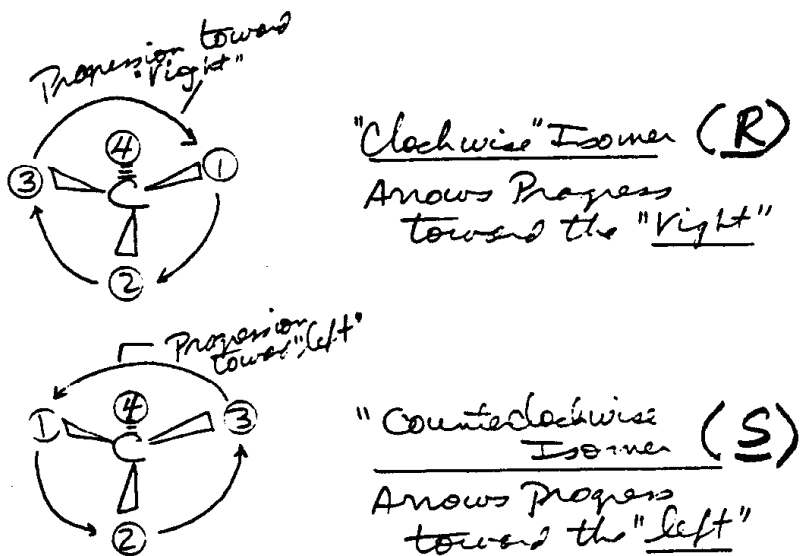 Progression toward
"right"
④
③ C ①
②
"Clockwise" Isomer (R)
Arrows Progress
toward the "right"
Progression
toward "left"
④
① C ③
②
"Counterclockwise
Isomer (S)
Arrows Progress
toward the "left"